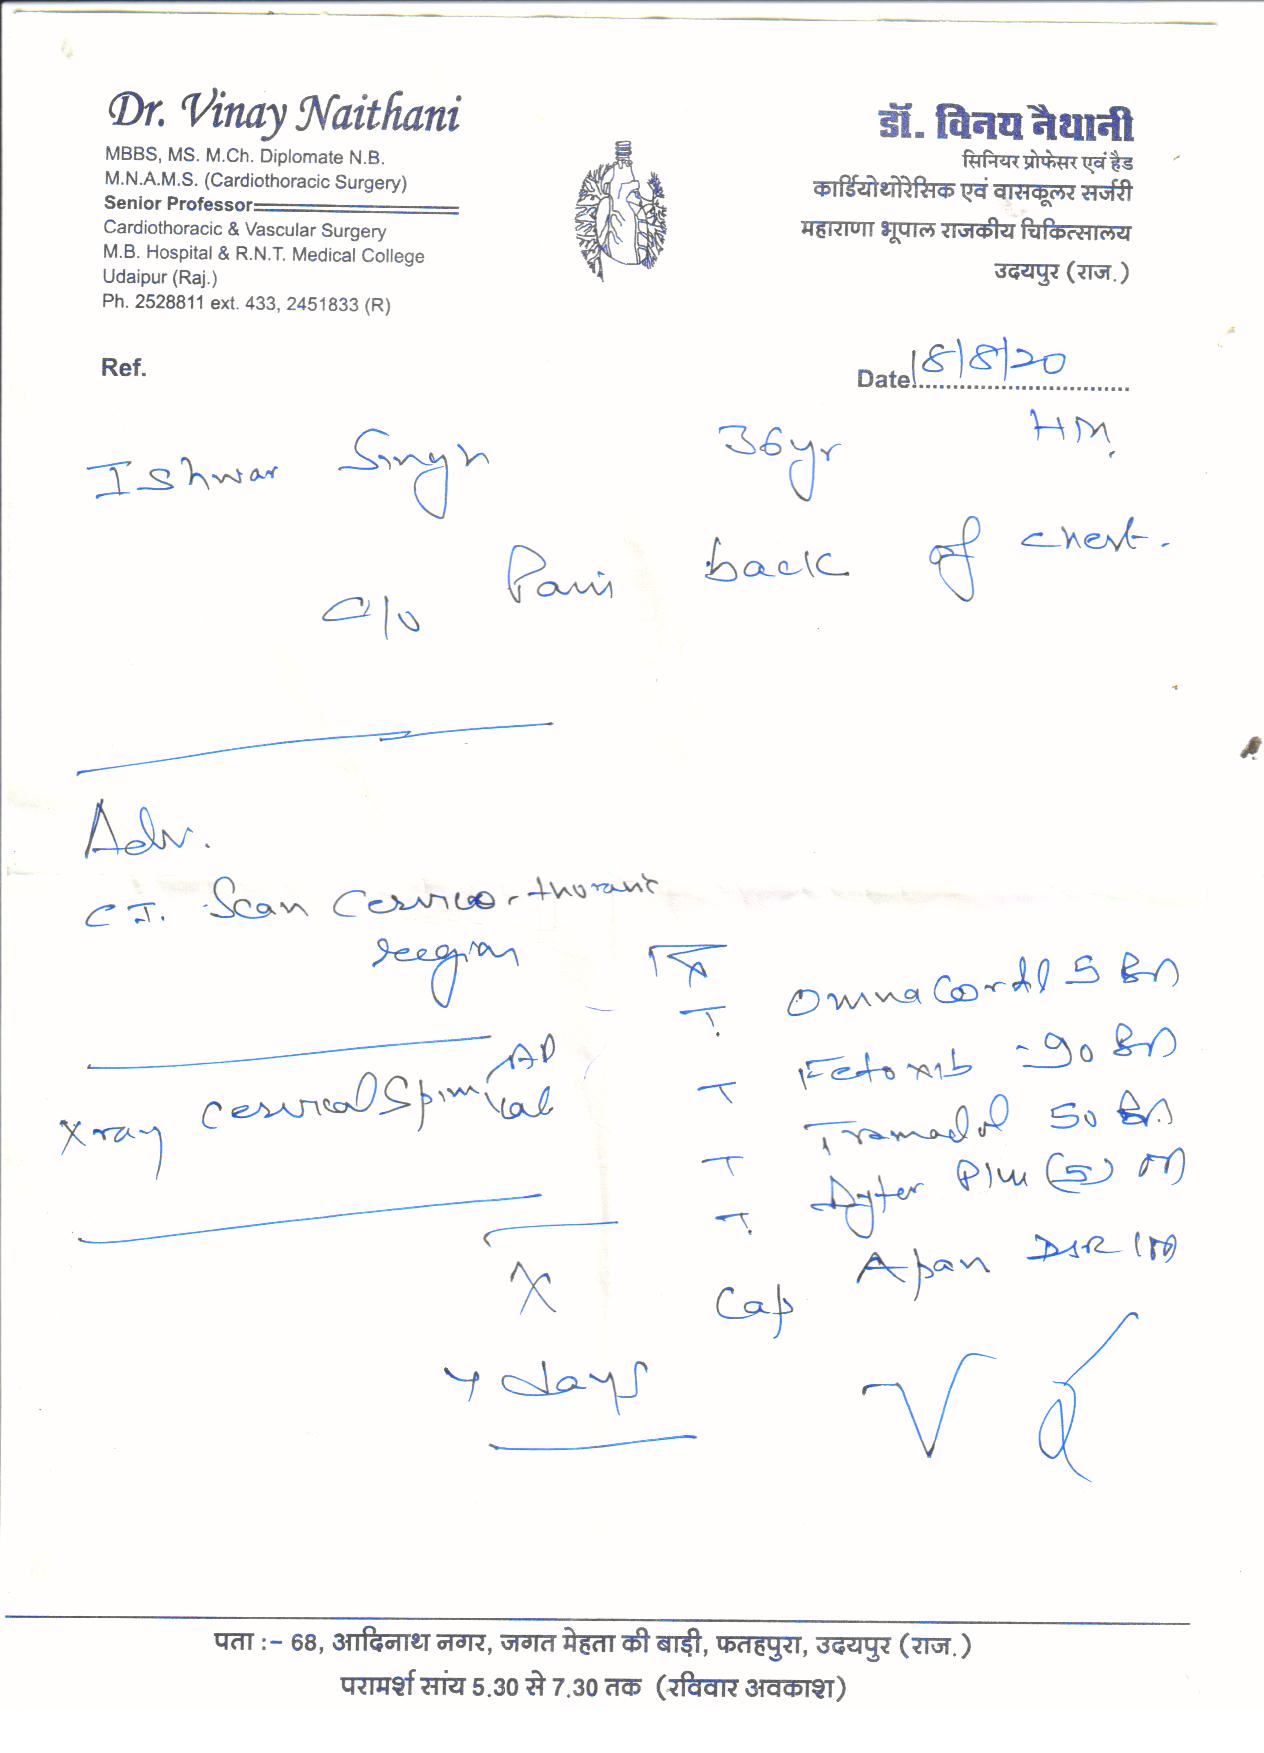 Dr. Vinay Naithani
MBBS, MS. M.Ch. Diplomate N.B.
M.N.A.M.S. (Cardiothoracic Surgery)
Senior Professor
Cardiothoracic & Vascular Surgery
M.B. Hospital & R.N.T. Medical College
Udaipur (Raj.)
Ph. 2528811 ext. 433, 2451833 (R)
डॉ. विनय नैथानी
सिनियर प्रोफेसर एवं हैड
कार्डियोथोरेसिक एवं वासकूलर सर्जरी
महाराणा भूपाल राजकीय चिकित्सालय
उदयपुर (राज.)
Ref.
Date 18/8/20
Ishwar Singh 36yr HM.
C/o Pain back of chest.
Adv.
C T. Scan Cervico-thoracic
region
Xray Cervical Spine AP
Lat
Rx
T. Omnacortil 5 BD
T Etoxib -90 BD
T Tramadol 50 BD
T. Dytor Plus (5) OD
Cap Apan DSR 1OD
X
7 days
पता :- 68, आदिनाथ नगर, जगत मेहता की बाड़ी, फतहपुरा, उदयपुर (राज.)
परामर्श सांय 5.30 से 7.30 तक (रविवार अवकाश)